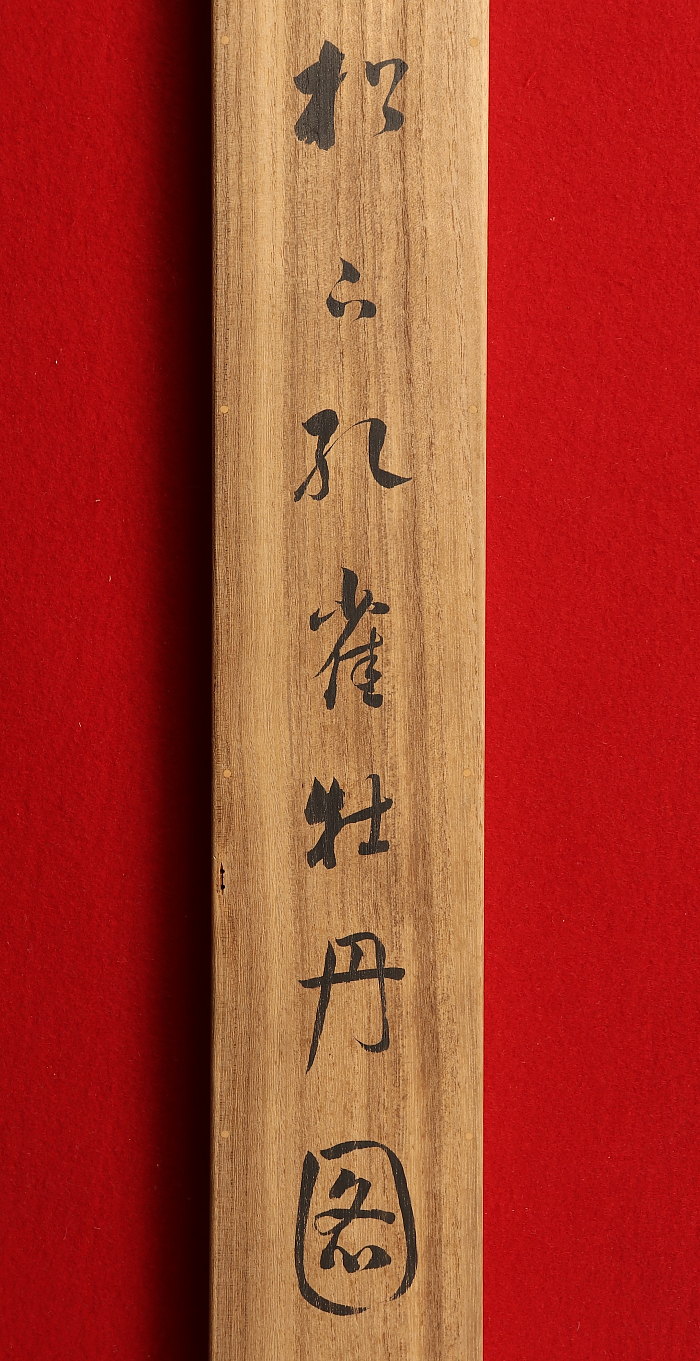 松下孔雀牡丹図